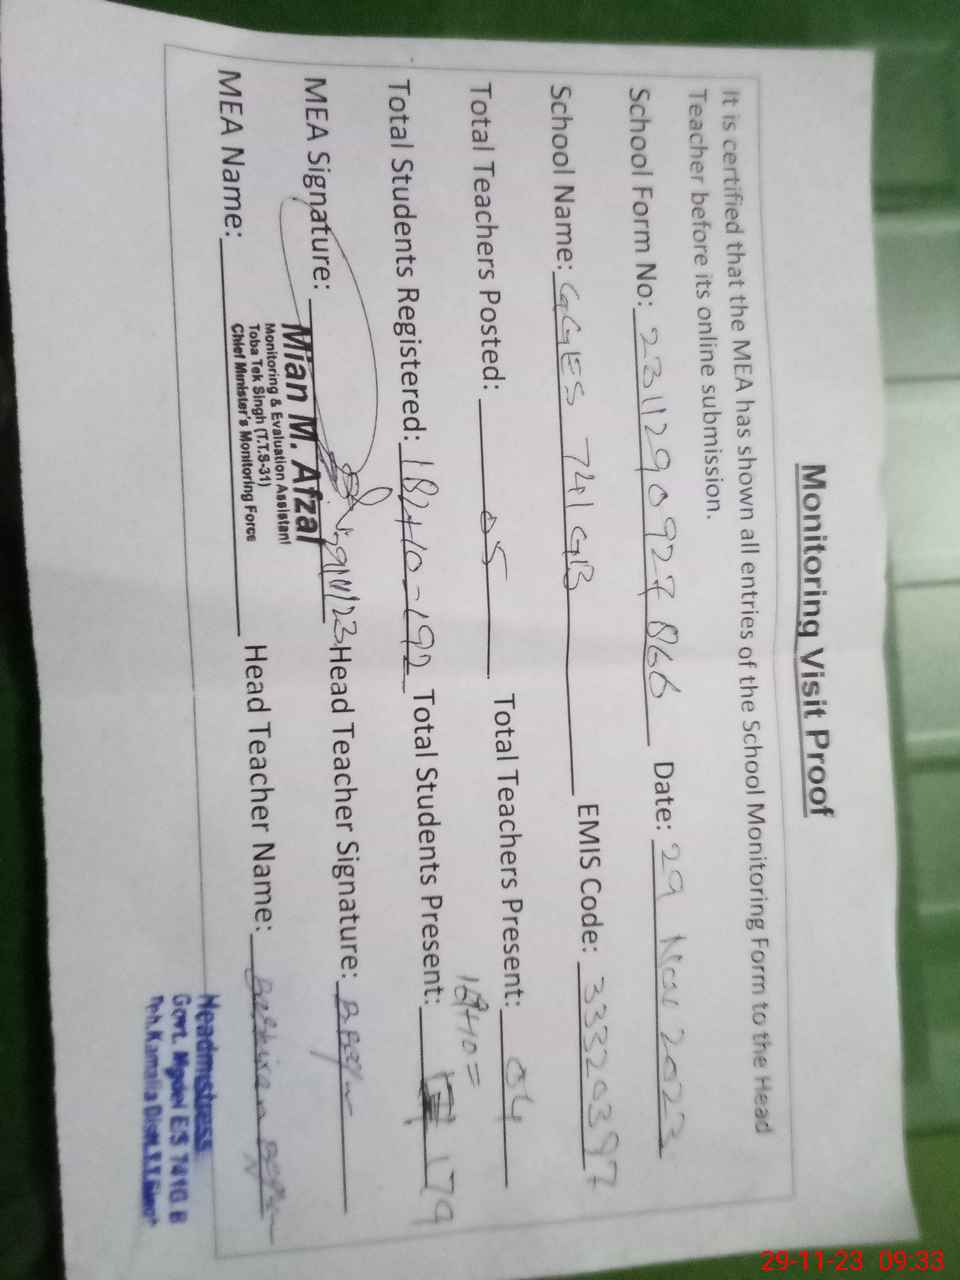 Monitoring Visit Proof
It is certified that the MEA has shown all entries of the School Monitoring Form to the Head
Teacher before its online submission.
School Form No: 2311290927866 Date: 29 Nov 2023
School Name: GGES 741 GB EMIS Code: 33320397
Total Teachers Posted: 05 Total Teachers Present: 04
169+10=
Total Students Registered: 182+10-192 Total Students Present: 179
MEA Signature: Head Teacher Signature:
Mian M. Afzal
Monitoring & Evaluation Assistant
Toba Tek Singh (T.T.S-31)
Chief Minister's Monitoring Force
MEA Name: Head Teacher Name:
Headmistress
Govt. Model E/S 741G B
Teh. Kamalia
29-11-23 09:33